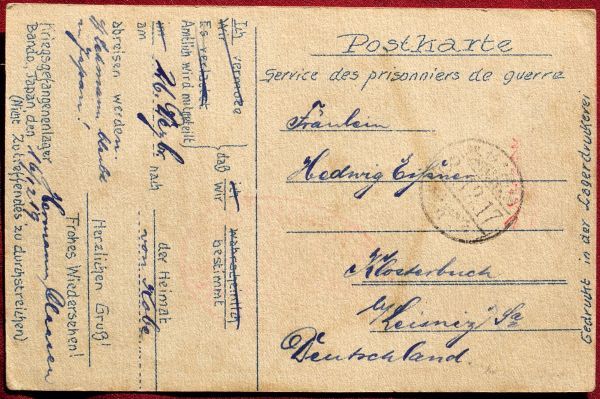 Postkarte
Service des prisonniers de guerre
Fräulein
Hedwig Eißner
Klosterbuch
b/ Leisnig i/ Sa
Deutschland.
Gedruckt in der Lagerdruckerei
Ich vermute
Wir
Es verlautet
Amtlich wird mitgeteilt
daß
ich
wir
wahrscheinlich
bestimmt
am 26. Dezbr. nach der Heimat
von Kobe
abreisen werden.
Japan!
Herzlichen Gruß!
Frohes Wiedersehen!
Kriegsgefangenenlager
Bando, Japan den 16/12 19
Hermann
(Nicht Zutreffendes zu durchstreichen)